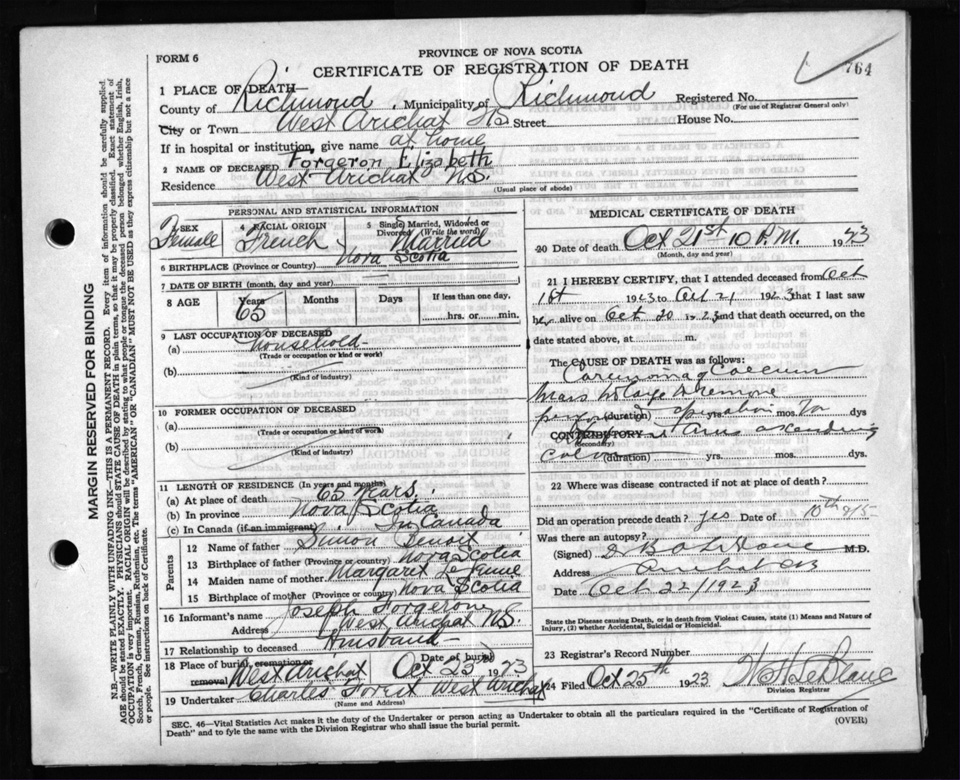 PROVINCE OF NOVA SCOTIA
FORM 6
CERTIFICATE OF REGISTRATION OF DEATH
764
1 PLACE OF DEATH—
County of Richmond, Municipality of Richmond Registered No.
(For use of Registrar General only)
City or Town West Arichat N.S. Street House No.
If in hospital or institution, give name at home
2 NAME OF DECEASED Forgeron Elizabeth
Residence West Arichat N.S.
(Usual place of abode)
PERSONAL AND STATISTICAL INFORMATION
3 SEX Female
4 RACIAL ORIGIN French
5 Single, Married, Widowed or Divorced (Write the word) Married
6 BIRTHPLACE (Province or Country) Nova Scotia
7 DATE OF BIRTH (month, day and year)
8 AGE Years 65 Months Days If less than one day.
hrs. or min.
9 LAST OCCUPATION OF DECEASED
(a) household
(Trade or occupation or kind or work)
(b)
(Kind of industry)
10 FORMER OCCUPATION OF DECEASED
(a)
(Trade or occupation or kind or work)
(b)
(Kind of industry)
11 LENGTH OF RESIDENCE (In years and months)
(a) At place of death 65 Years.
(b) In province Nova Scotia
(c) In Canada (if an immigrant) In Canada
Parents
12 Name of father Simon Benoit
13 Birthplace of father (Province or country) Nova Scotia
14 Maiden name of mother Margaret
15 Birthplace of mother (Province or country) Nova Scotia
16 Informant's name Joseph Forgeron
Address West Arichat N.S.
17 Relationship to deceased Husband
18 Place of burial, cremation or removal West Arichat Date of burial Oct 23 1923
19 Undertaker Charles Forest West Arichat
(Name and Address)
MEDICAL CERTIFICATE OF DEATH
20 Date of death Oct 21st 10 P.M. 1923
(Month, day and year)
21 I HEREBY CERTIFY, that I attended deceased from Oct
1st 1923 to Oct 21 1923 that I last saw
her alive on Oct 20 1923 and that death occurred, on
date stated above, at m.
The CAUSE OF DEATH was as follows:
Carcinoma of Caecum
(duration) yrs. mos. dys
CONTRIBUTORY ascending
(Secondary)
(duration) yrs. mos. dys.
22 Where was disease contracted if not at place of death?
Did an operation precede death? yes Date of 10th
Was there an autopsy?
(Signed) M.D.
Address Arichat
Date Oct 22/1923
State the Disease causing Death, or in death from Violent Causes, state (1) Means and Nature of
Injury, (2) whether Accidental, Suicidal or Homicidal.
23 Registrar's Record Number
24 Filed Oct 25th 1923 LeBlanc
Division Registrar
SEC. 46—Vital Statistics Act makes it the duty of the Undertaker or person acting as Undertaker to obtain all the particulars required in the "Certificate of Registration of
Death" and to fyle the same with the Division Registrar who shall issue the burial permit.
(OVER)
MARGIN RESERVED FOR BINDING
N.B.—WRITE PLAINLY WITH UNFADING INK—THIS IS A PERMANENT RECORD. Every item of information should be carefully supplied.
AGE should be stated EXACTLY. PHYSICIANS should STATE CAUSE OF DEATH in plain terms, so that it may be properly classified. Exact statement of
OCCUPATION is very important. RACIAL ORIGIN will be described by stating to what people or tongue the deceased person belonged whether English, Irish,
Scotch, French, German, Russian, Ruthenian, etc. The terms "AMERICAN" or "CANADIAN" MUST NOT BE USED as they express citizenship but not a race
or people. See instructions on back of Certificate.